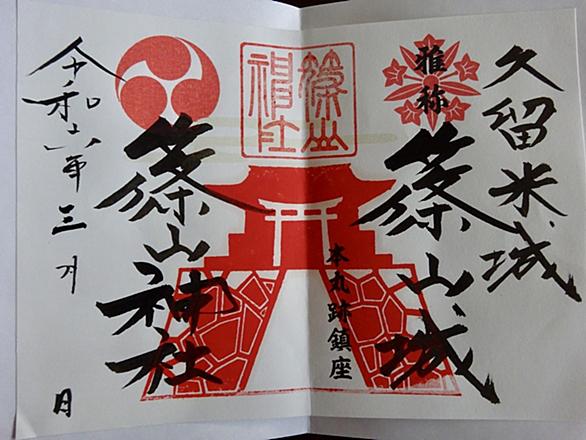 久留米城
雅称
篠山城
本丸跡鎮座
篠山神社
篠山神社
令和六年三月
日